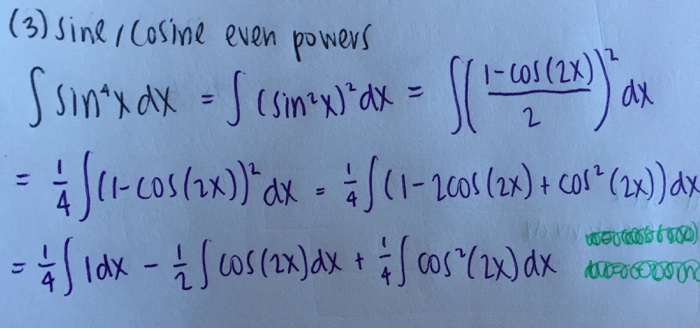 (3) sine / cosine even powers
∫ sin⁴x dx = ∫ (sin²x)² dx = ∫ ((1-cos(2x))/2)² dx
= 1/4 ∫ (1-cos(2x))² dx = 1/4 ∫ (1-2cos(2x) + cos²(2x)) dx
= 1/4 ∫ 1dx - 1/2 ∫ cos(2x) dx + 1/4 ∫ cos²(2x) dx